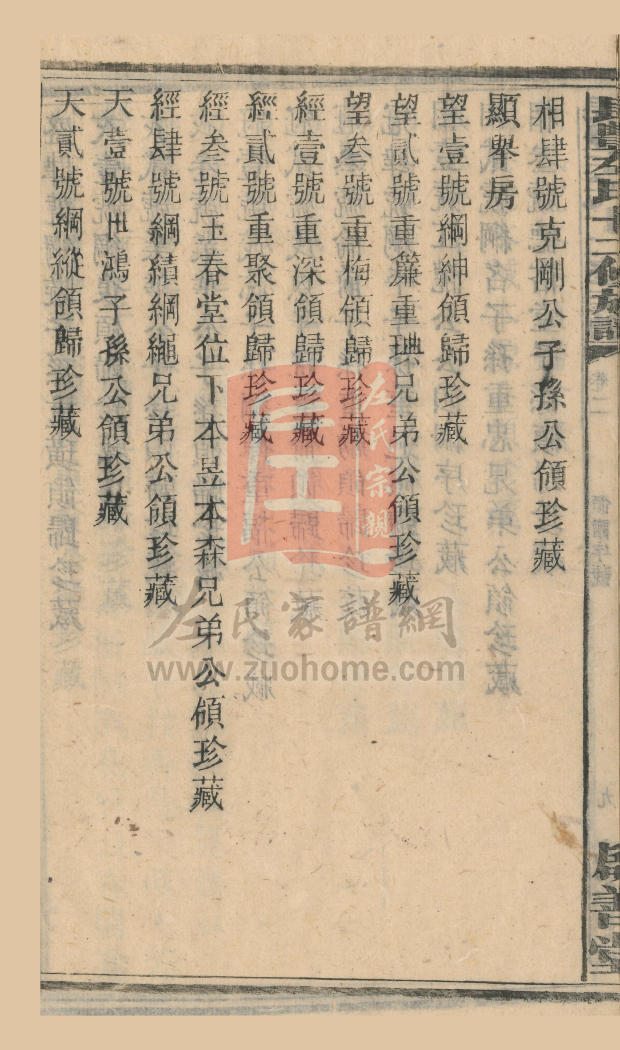 相肆號克剛公子孫公領珍藏
顯舉房
望壹號綱紳領歸珍藏
望貳號重簾重㻠兄弟公領珍藏
望叁號重梅領歸珍藏
經壹號重深領歸珍藏
經貳號重聚領歸珍藏
經叁號玉春堂位下本昱本森兄弟公領珍藏
經肆號綱績綱繩兄弟公領珍藏
天壹號世鴻子孫公領珍藏
天貳號綱縱領歸珍藏
左氏宗親
左氏家譜網
www.zuohome.com